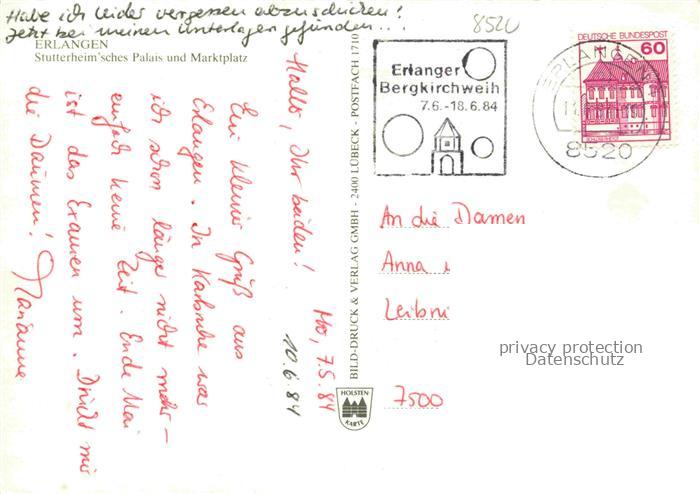 Habe ich leider vergessen abzuschicken!
Jetzt bei meinen Unterlagen gefunden...
8520
ERLANGEN
Stutterheim'sches Palais und Marktplatz
Mo, 7.5.84
10.6.84
Hallo, Ihr beiden!
Ein kleiner Gruß aus
Erlangen. In Karlsruhe war
ich schon länger nicht mehr –
einfach keine Zeit. Ende Mai
ist das Examen um. Drückt mir
die Daumen! Marianne
BILD-DRUCK & VERLAG GMBH - 2400 LÜBECK - POSTFACH 1710
HOLSTEN
KARTE
Erlanger
Bergkirchweih
7.6.-18.6.84
DEUTSCHE BUNDESPOST
60
ERLANGEN
8520
An die Damen
Anna
Leibni
7500
privacy protection
Datenschutz